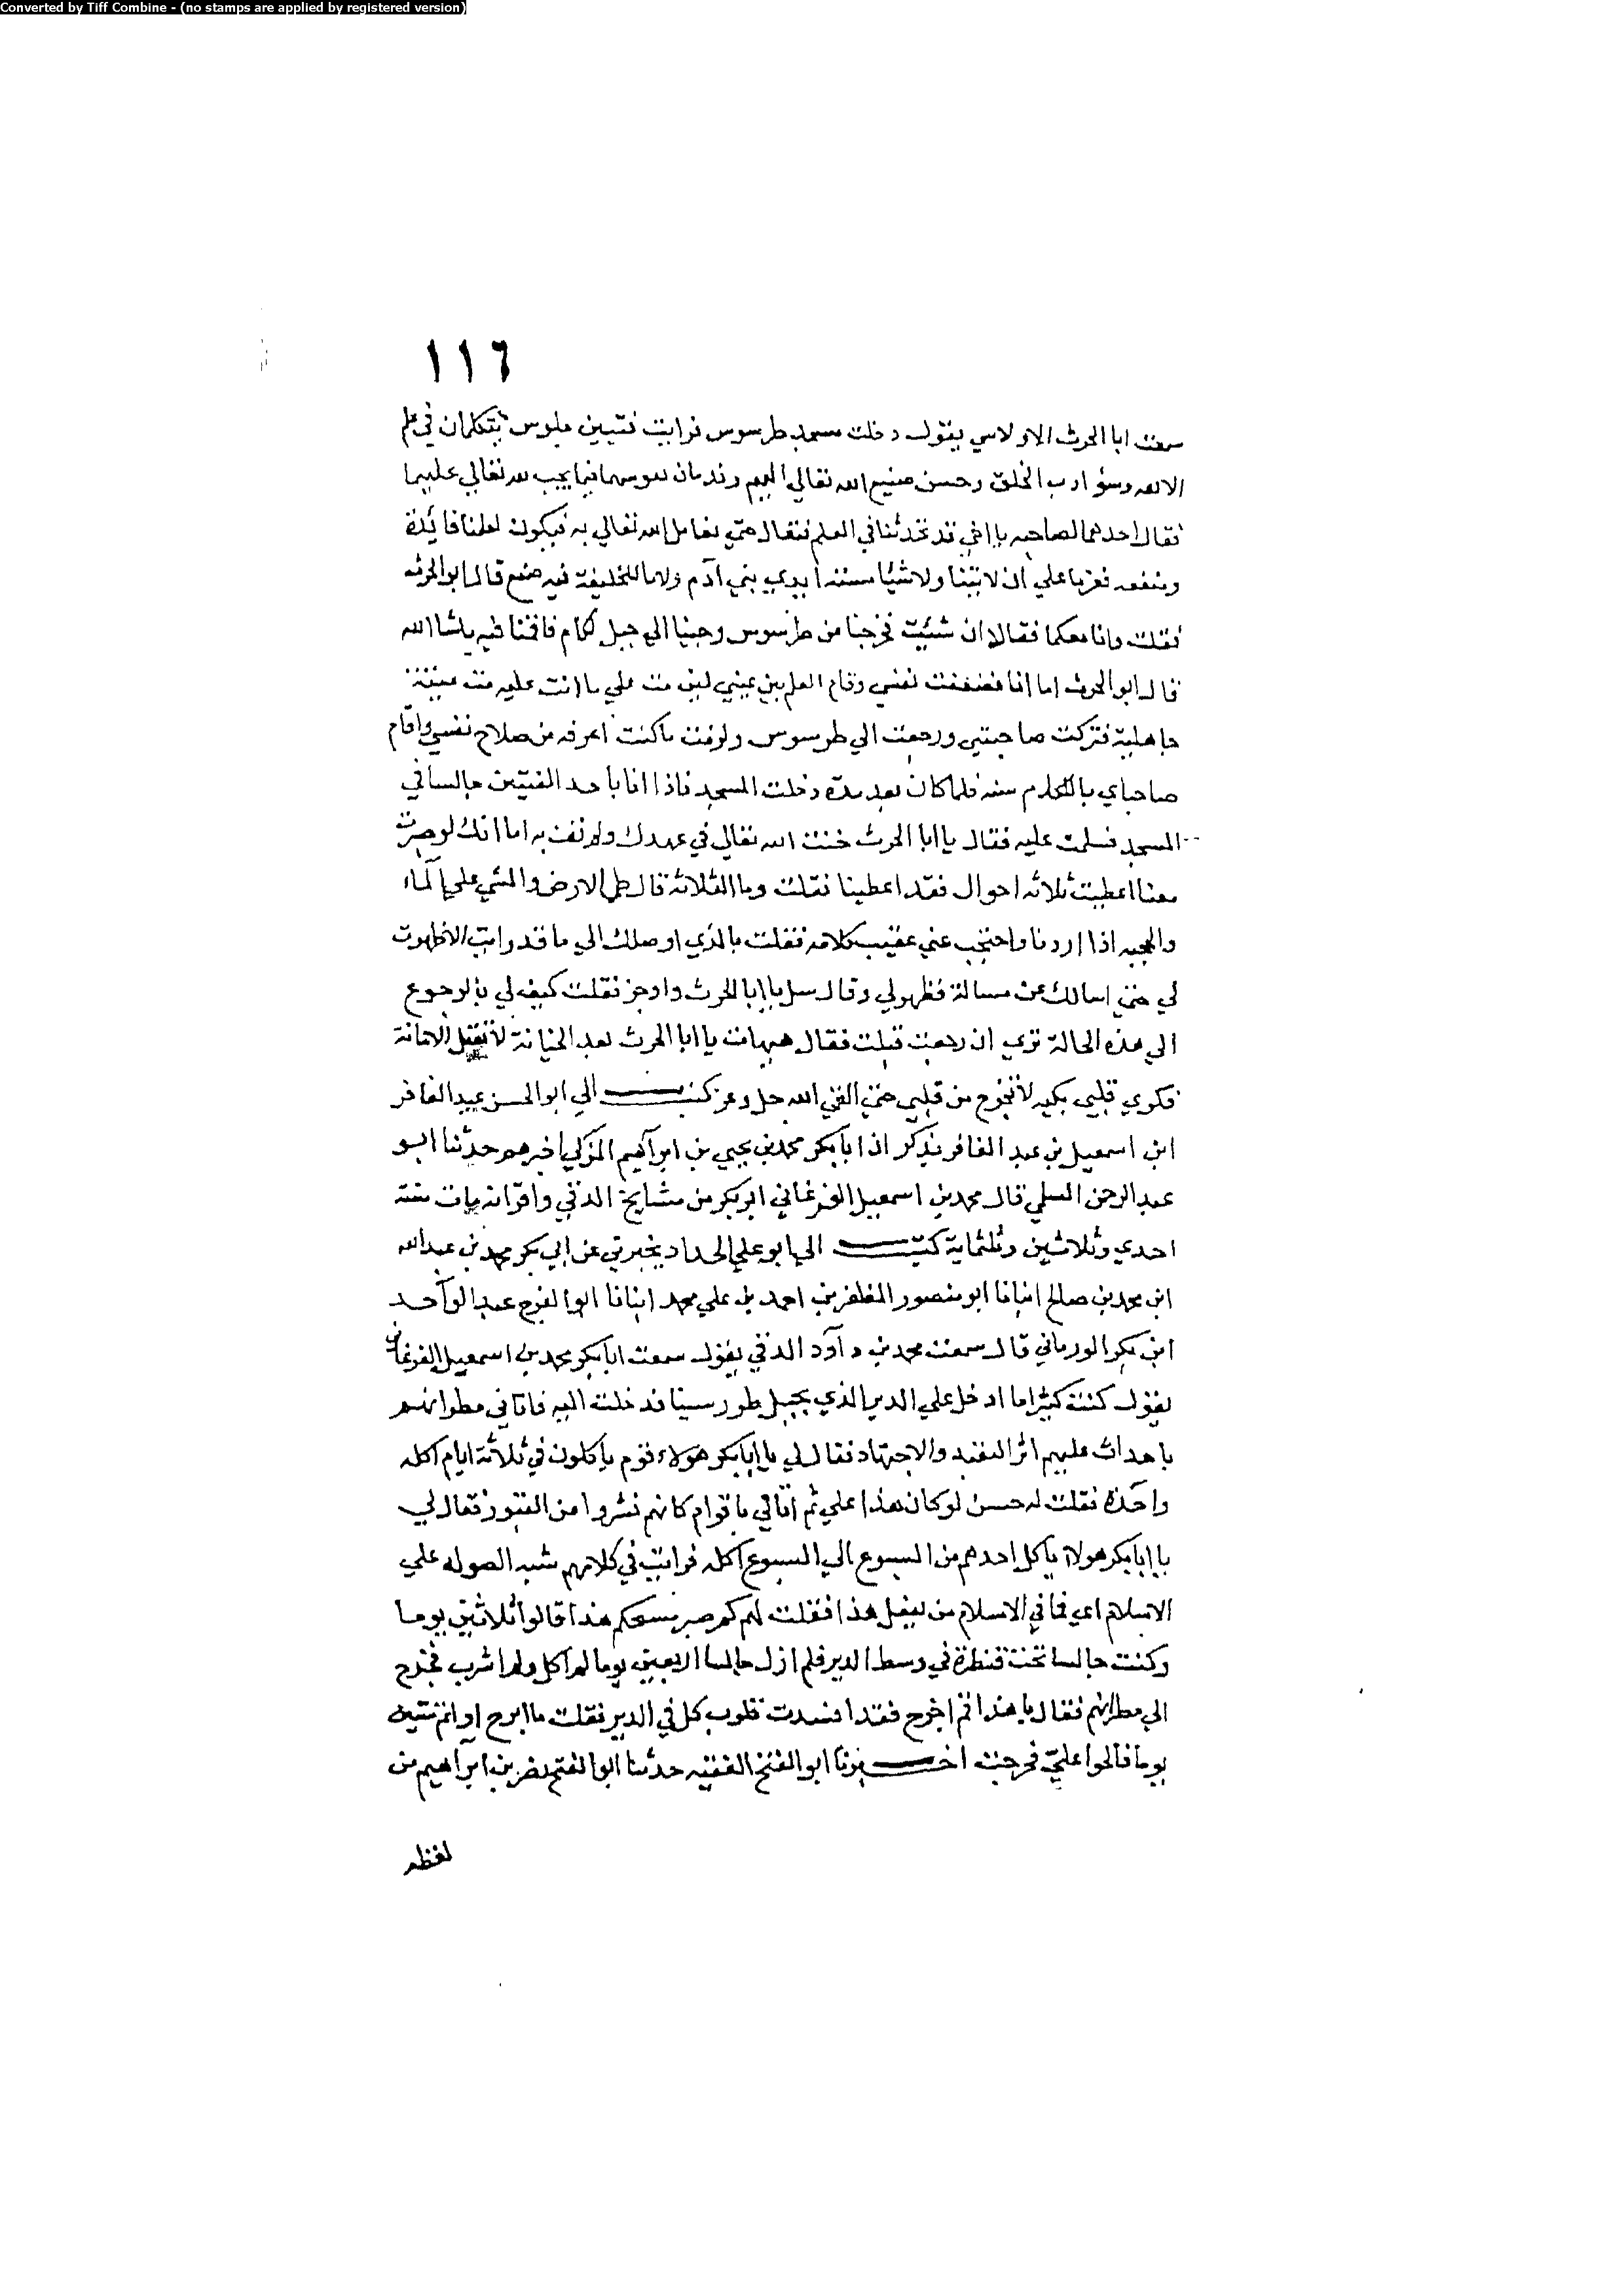 Converted by Tiff Combine - (no stamps are applied by registered version)
١١٦
سمعت ابا الحرث الاولاسي يقول دخلت مسجد طرسوس فرايت فتيين جلوس يتكلمان في علم
الالفه وسؤ ادب الخلق وحسن صنيع الله تعالي اليهم ويذمان نفوسهما فيما يجب لله تعالي عليهما
فقال احدهما لصاحبه يا اخي قد تحدثنا في العلم فتعال حتي نعامل الله تعالي به فيكون لعلمنا فائدة
ومنفعه فعزما علي ان لا شيئا مسته ايدي بني آدم ولا ما للخليقة فيه صنع قال ابو الحرث
فقلت وانا معكما فقالا ان شئيت فخرجنا من طرسوس وجينا الي جبل لكام فاقمنا فيه ما شا الله
قال ابو الحرث اما انا فضعفت نفسي وقام العلم بين عيني لين مت علي ما انت عليه مت ميتة
جاهلية فتركت صاحبتي ورجعت الي طرسوس ولزمت ما كنت اعرفه من صلاح نفسي واقام
صاحباي باللكام سنه فلما كان بعد مدة دخلت المسجد فاذا انا باحد الفتيين جالسا في
المسجد فسلمت عليه فقال يا ابا الحرث خنت الله تعالي في عهدك ولم تف به اما انك لو صبرت
معنا اعطيت ثلاثه احوال فقد اعطينا فقلت وما الثلاثة قال طي الارض والمشي علي الماء
والحجبه اذا اردنا واحتجب عني عقيب كلامه فقلت بالذي اوصلك الي ما قد رايت الا ظهرت
لي حتي اسالك عن مسالة فظهر لي وقال سل يا ابا الحرث واوجز فقلت كيف لي بالرجوع
الي هذه الحالة تري ان رجعت قبلت فقال هيهات يا ابا الحرث بعد الخيانة لا تقبل الامانة
فكوي قلبي بكيه لا تخرج من قلبي حتي القي الله جل وعز كتب الي ابو الحسن عبد الغافر
ابن اسمعيل بن عبد الغافر يذكر ان ابا بكر محمد بن يحيي بن ابراهيم المزكي اخبرهم حدثنا ابو
عبد الرحمن السلمي قال محمد بن اسمعيل الفرغاني ابو بكر من مشايخ الدقي واقرانه مات سنة
احدي وثلاثين وثلثماية كتب الي ابو علي الحداد يخبرني عن ابي بكر محمد بن عبد الله
ابن محمد بن صالح انبانا ابو منصور المظفر بن احمد بن علي محمد انبانا ابو الفرج عبد الواحد
ابن بكر الورثاني قال سمعت محمد بن داود الدقي يقول سمعت ابا بكر محمد بن اسمعيل الفرغاني
يقول كنت كثيرا ما ادخل علي الدير الذي بجبل طور سينا فدخلت اليه فاتاني مطرانهم
باحداث عليهم اثر التعبد والاجتهاد فقال لي يا ابا بكر هؤلاء قوم ياكلون في ثلاثة ايام اكله
واحدة فقلت له حسن لو كان هذا علي ثم اتاني باقوام كانهم نشروا من القبور فقال لي
يا ابا بكر هولاء ياكل احدهم من السبوع الي السبوع اكله فرايت في كلامهم شبه الصوله علي
الاسلام اي فما في الاسلام من يفعل هذا فقلت لهم كم صبر مسيحكم هذا قالوا ثلاثين يوما
وكنت جالسا تحت قنطرة في وسط الدير فلم ازل جالسا اربعين يوما لم اكل ولم اشرب فخرج
الي مطرانهم فقال يا هذا قم اخرج فقد افسدت قلوب كل في الدير فقلت ما ابرح او اتم ستين
يوما فالحوا علي فخرجت اخبرنا ابو الفتح الفقيه حدثنا ابو الفتح نصر بن ابراهيم من
لفظه